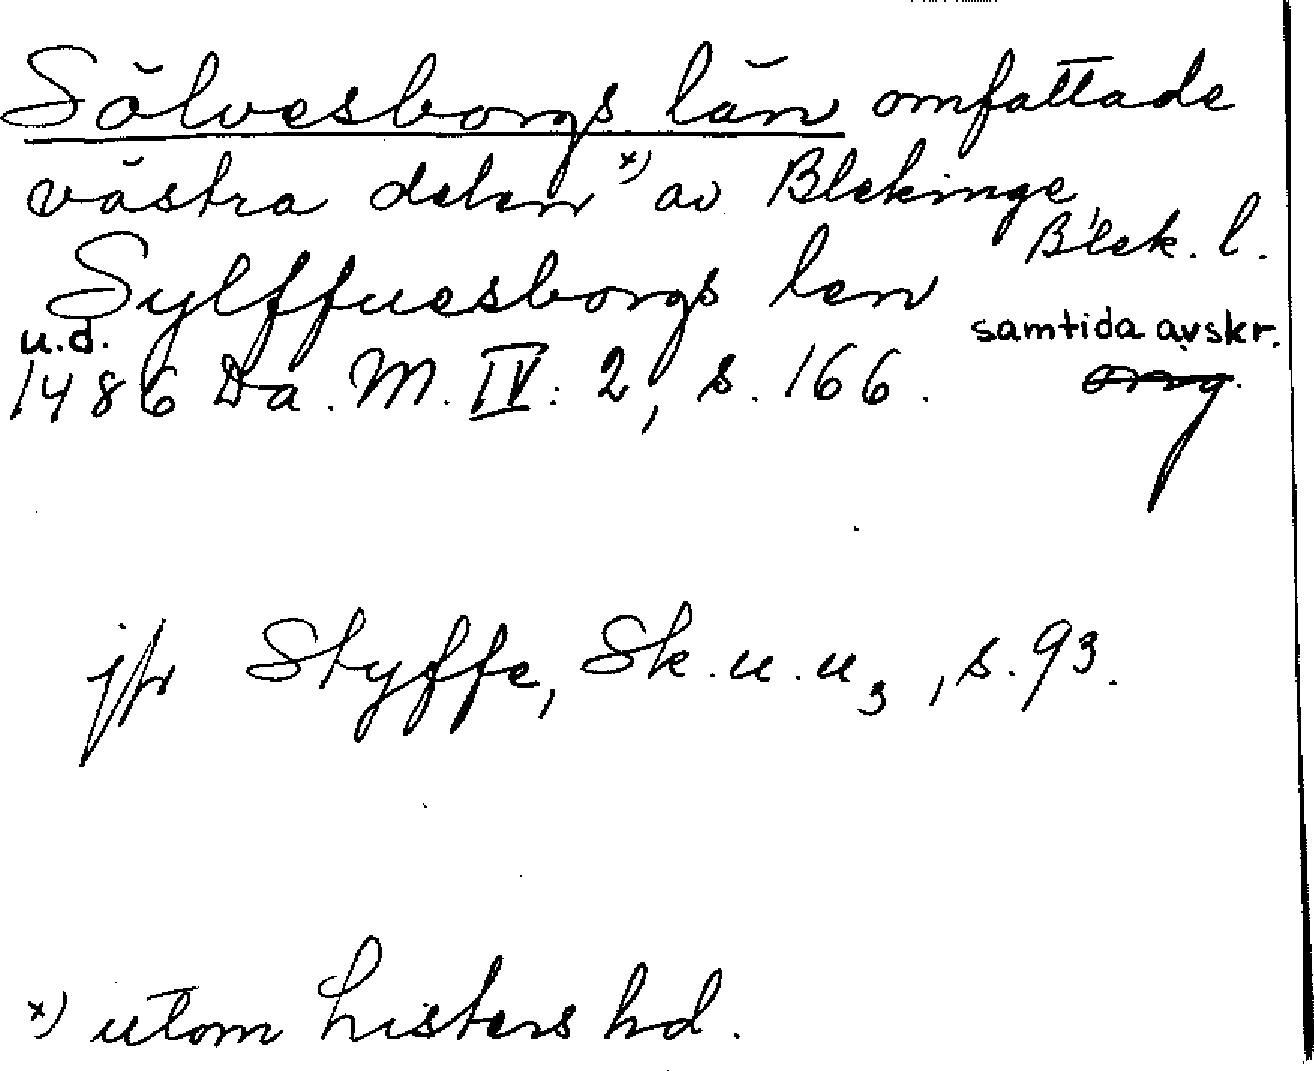 Sölvesborgs län omfattade
västra delen x) av Blekinge,
Blek. l.
Sylffuesborgs len
u.d. samtida avskr.
1486 Da. M. IV: 2, s. 166. orig.
jfr Styffe, Sk. u. u3, s. 93.
x) utom Listers hd.